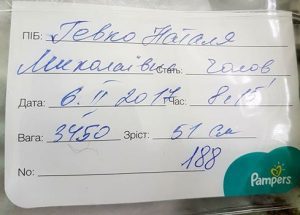 ПІБ: Гевко Наталя
Миколаївна Стать: чолов
Дата: 6. II 2017 Час: 8.15
Вага: 3450 Зріст: 51 см
No: 188
Pampers